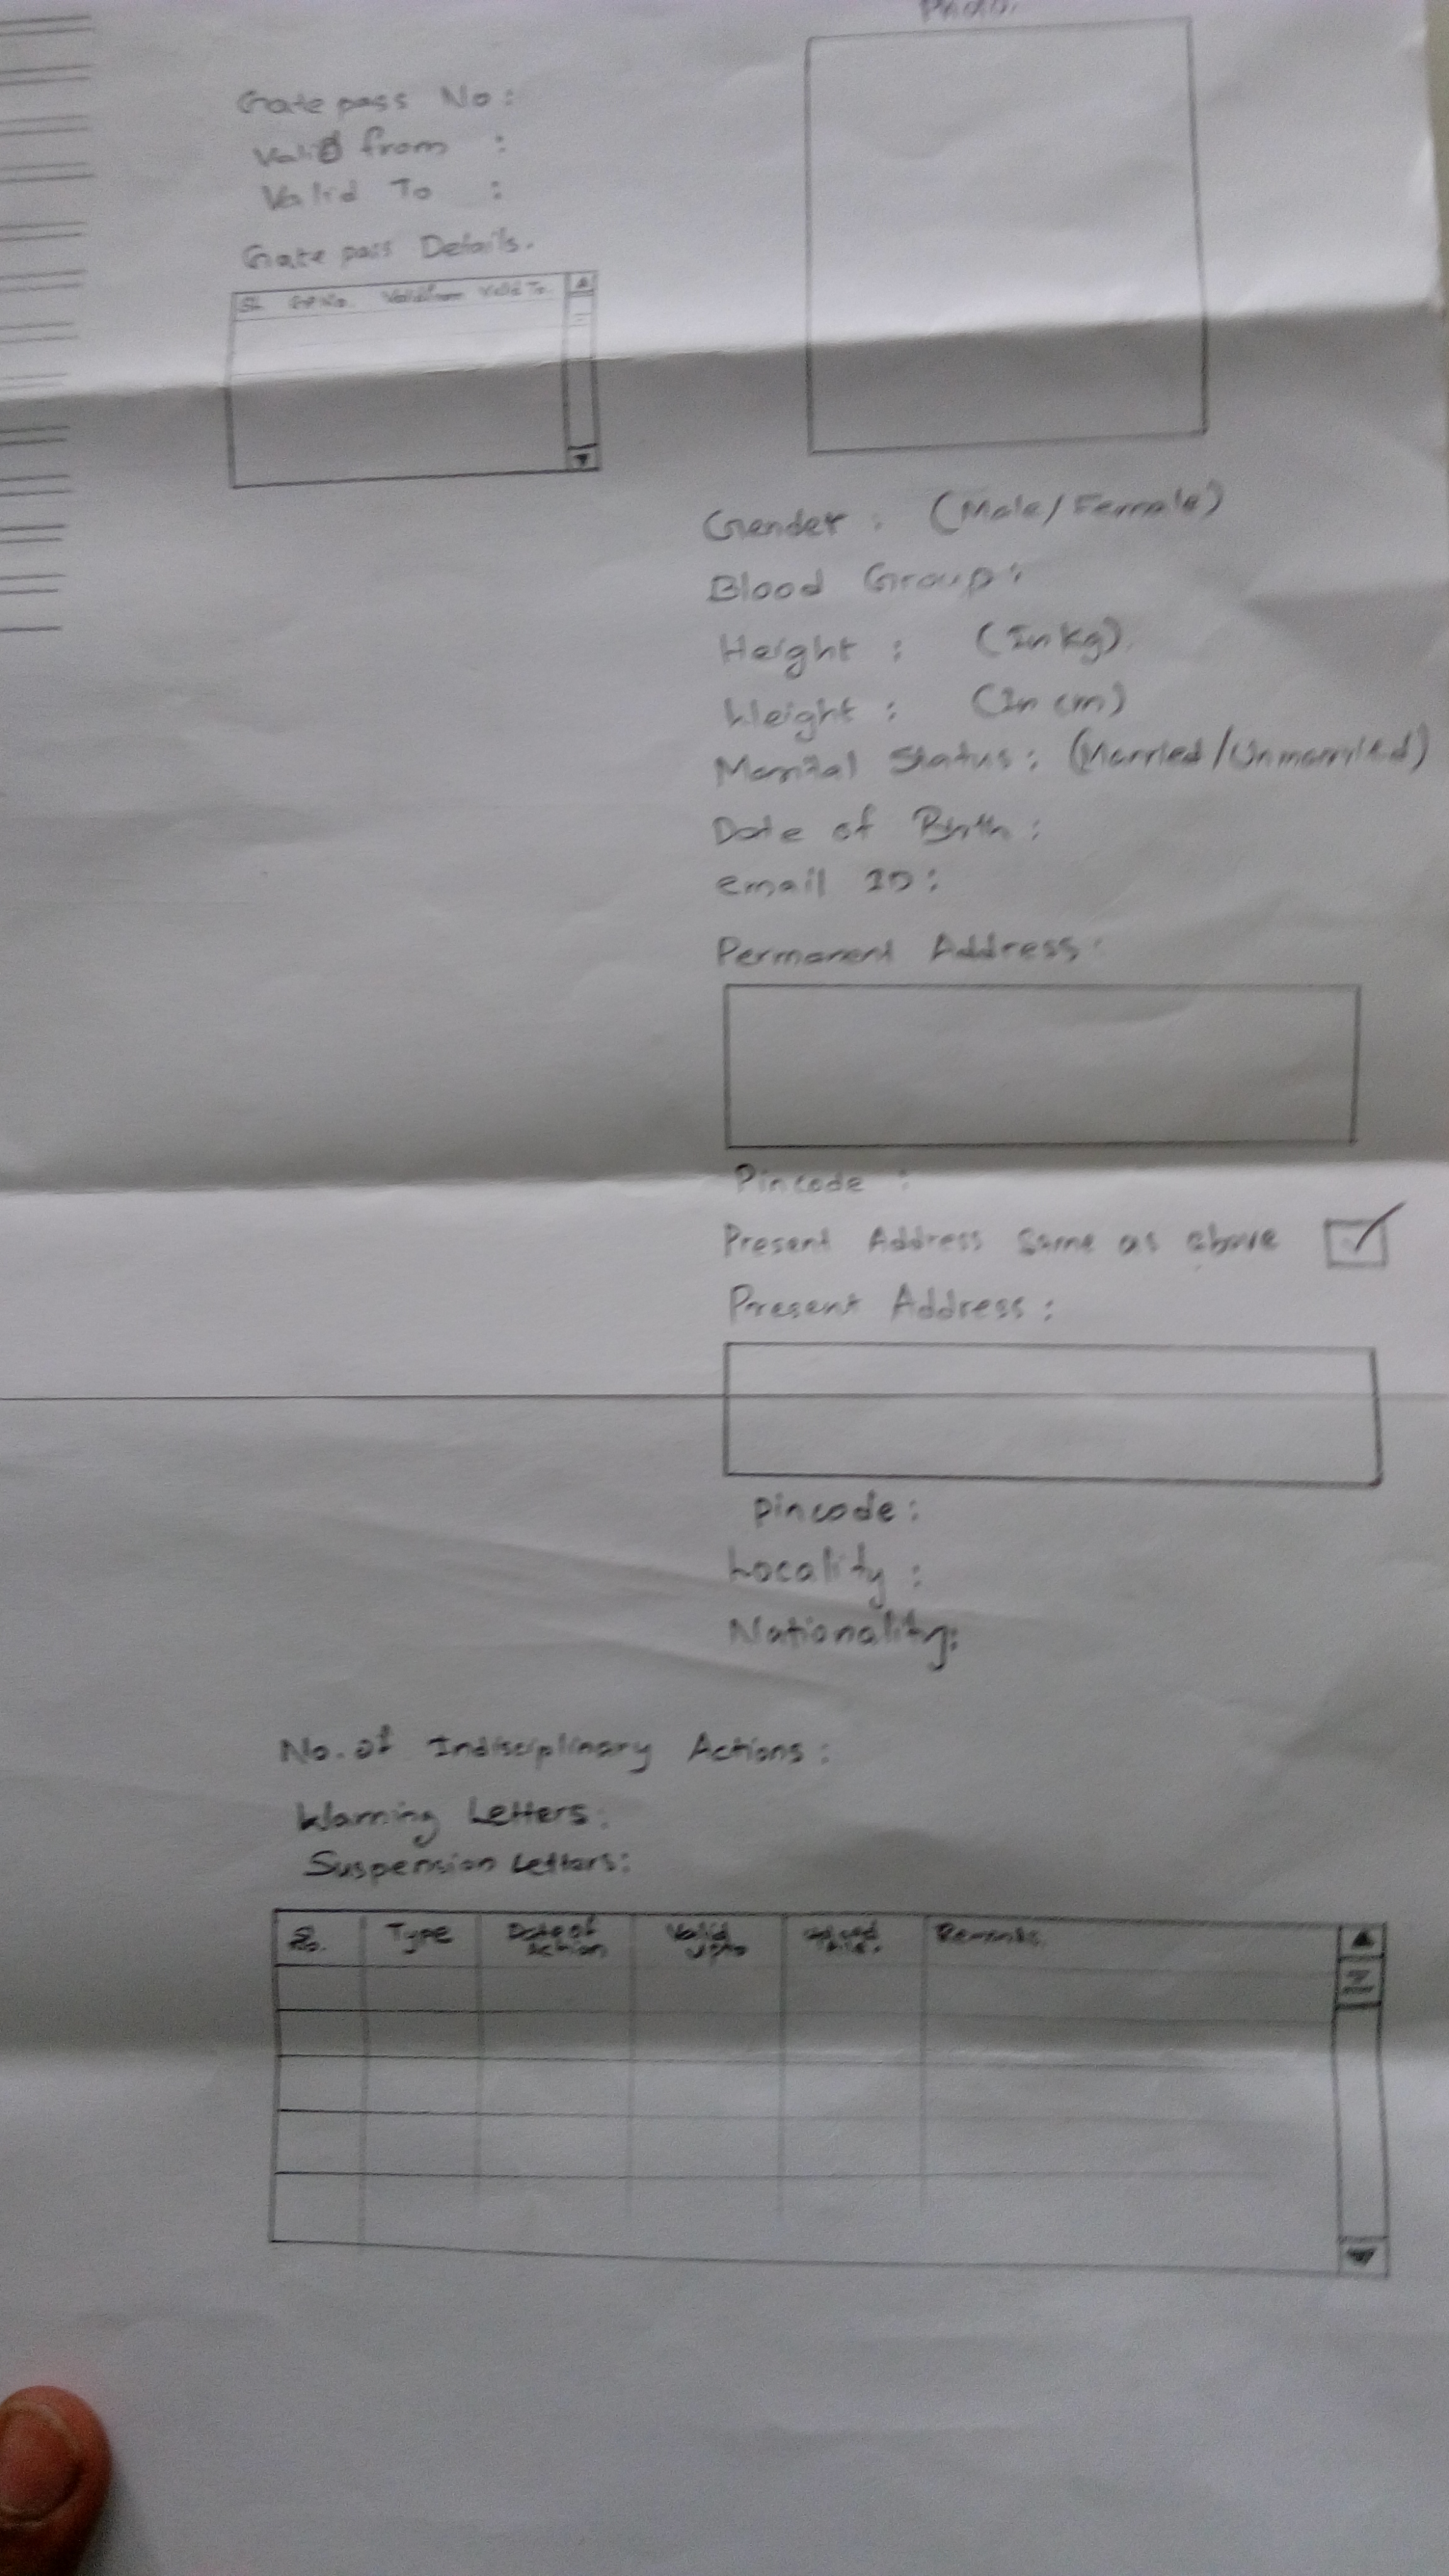 Photo.
Gate pass No :
Valid from :
Valid To :
Gate pass Details.
SL GP No. Valid from Valid To.
Gender : (Male/Female)
Blood Group :
Height : (In kg)
Weight : (In cm)
Marital Status : (Married/Unmarried)
Date of Birth :
email ID :
Permanent Address :
Pincode :
Present Address Same as above
Present Address :
Pincode :
Locality :
Nationality :
No. of Indisciplinary Actions :
Warning Letters :
Suspension Letters :
Type Date of Action Valid upto Remarks.